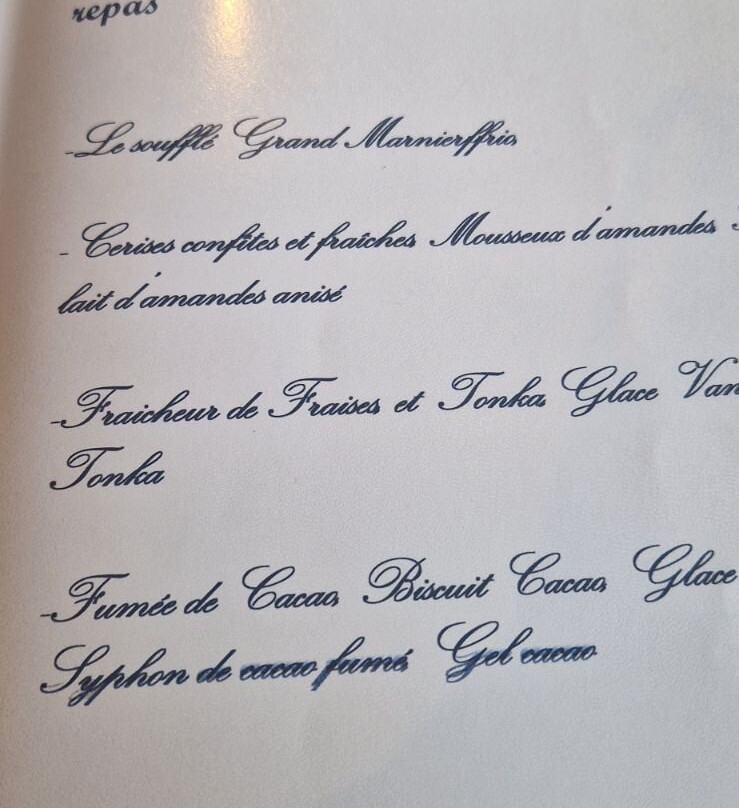 repas
-Le soufflé Grand Marnierffrio,
- Cerises confites et fraîches, Mousseux d'amandes,
lait d'amandes anisé
-Fraicheur de Fraises et Tonka, Glace Van
Tonka
-Fumée de Cacao, Biscuit Cacao, Glace
Syphon de cacao fumé, Gel cacao